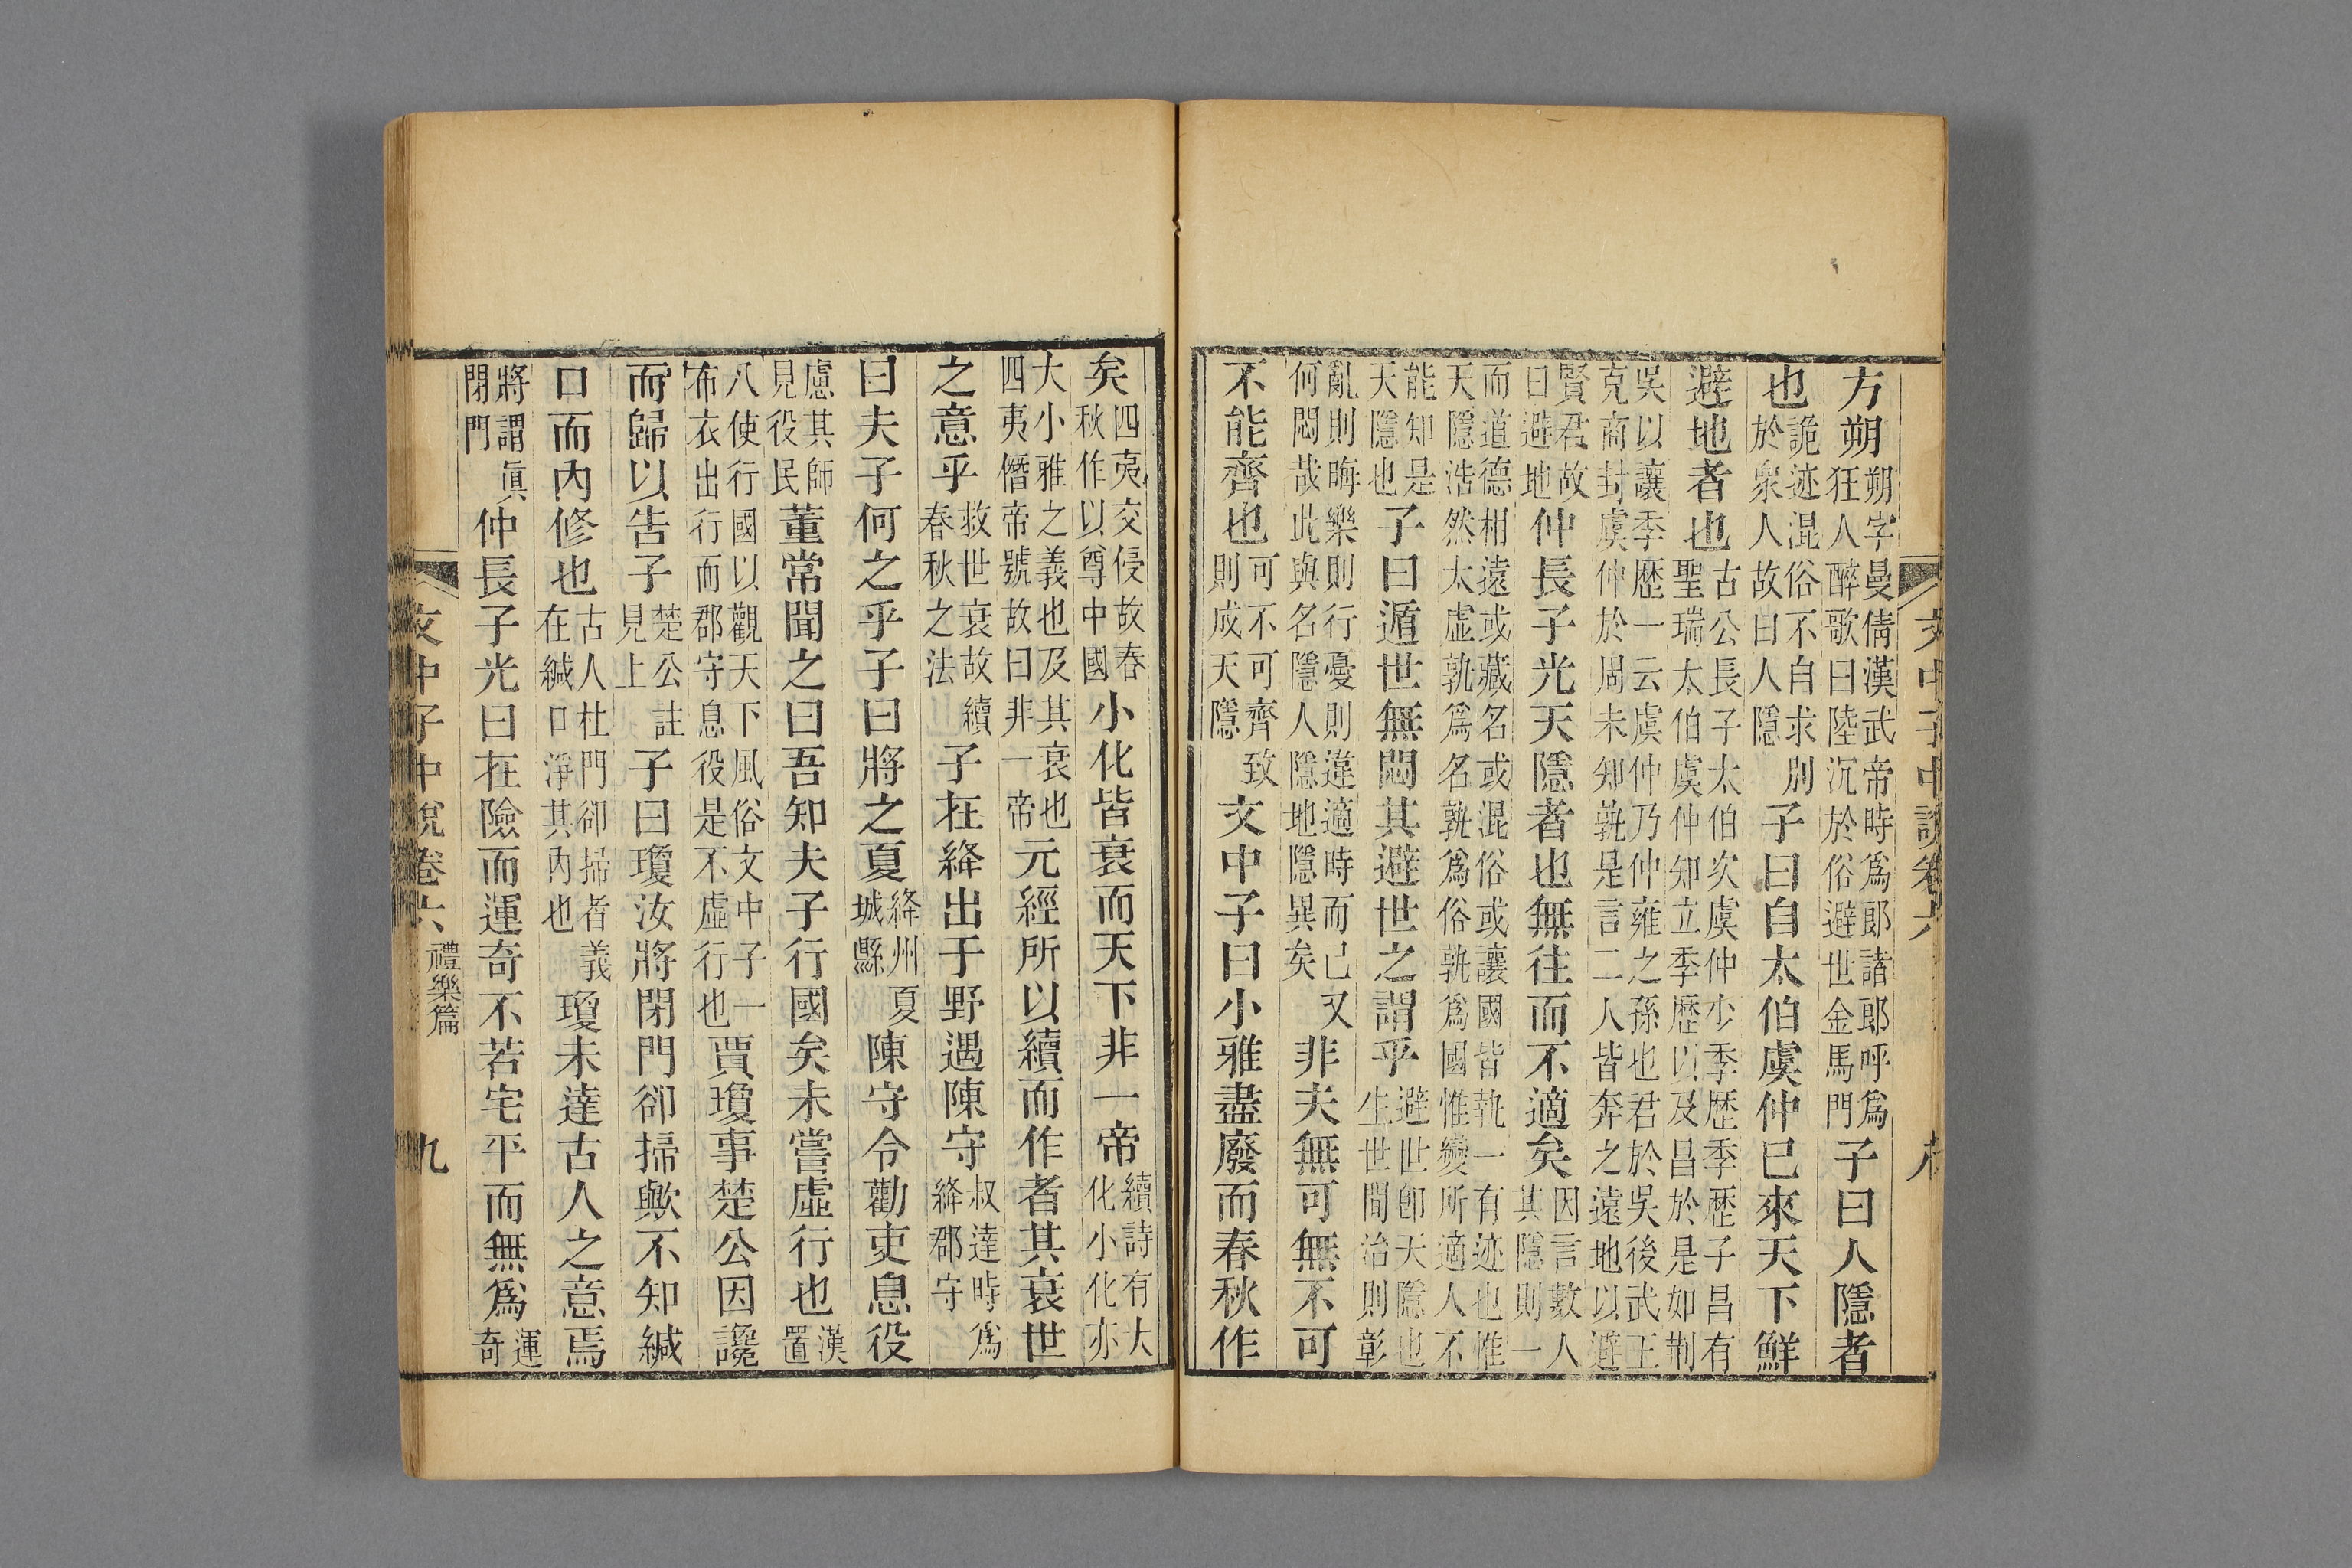 文中子中說卷六
方朔朔字曼倩漢武帝時爲郞諸郞呼爲狂人醉歌曰陸沉於俗避世金馬門子曰人隱者
也詭迹混俗不自求別於衆人故曰人隱子曰自太伯虞仲已來天下鮮
避地者也古公長子太伯次虞仲少季歷季歷子昌有聖瑞太伯虞仲知立季歷以及昌於是如荆
吳以讓季歷一云虞仲乃仲雍之孫也君於吳後武王克商封虞仲於周未知孰是言二人皆奔之遠地以避
賢君故曰避地仲長子光天隱者也無往而不適矣因言數人其隱則一
而道德相遠或藏名或混俗或讓國皆執一有迹也惟天隱浩然太虛孰爲名孰爲俗孰爲國惟變所適人不
能知是天隱也子曰遁世無悶其避世之謂乎避世卽天隱也生世間治則彰
亂則晦樂則行憂則違適時而已又何悶哉此與名隱人隱地隱異矣非夫無可無不可
不能齊也可不可齊致則成天隱文中子曰小雅盡廢而春秋作
矣四夷交侵故春秋作以尊中國小化皆衰而天下非一帝續詩有大化小化亦
大小雅之義也及其衰也四夷僭帝號故曰非一帝元經所以續而作者其衰世
之意乎救世衰故續春秋之法子在絳出于野遇陳守叔達時爲絳郡守
曰夫子何之乎子曰將之夏絳州夏城縣陳守令勸吏息役
慮其師見役民董常聞之曰吾知夫子行國矣未嘗虛行也漢置
八使行國以觀天下風俗文中子一布衣出行而郡守息役是不虛行也賈瓊事楚公因讒
而歸以告子楚公註見上子曰瓊汝將閉門卻掃歟不知緘
口而內修也古人杜門卻掃者義在緘口淨其內也瓊未達古人之意焉
將謂眞閉門仲長子光曰在險而運奇不若宅平而無爲運奇
文中子中說卷六 禮樂篇 九